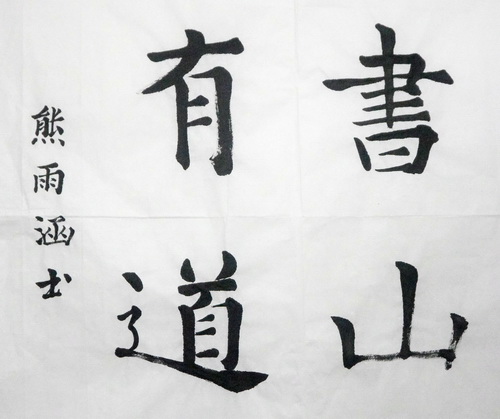 書山
有道
熊雨涵书